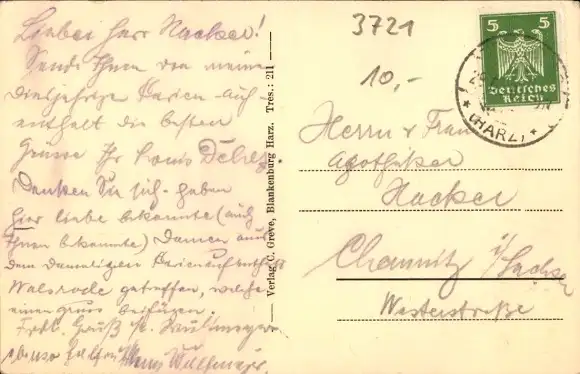 Lieber Herr Hacker!
Sende Ihnen von meinem
diesjährigen Ferien-Auf-
enthalt die besten
Grüsse Ihr Louis
Denken Sie sich, haben
hier liebe bekannte (auch
Ihnen bekannte) Damen aus
dem damaligen Ferienaufenthalt
Walsrode getroffen, welche
einen Gruss beifügen.
Frdl. Gruß
ebenso
Verlag C. Greve, Blankenburg Harz. Tres.: 211
3721
10,-
5 5
Deutsches
Reich
(HARZ)
Herrn u. Frau
Apotheker
Hacker
Chemnitz i/Sachsen
Weststraße